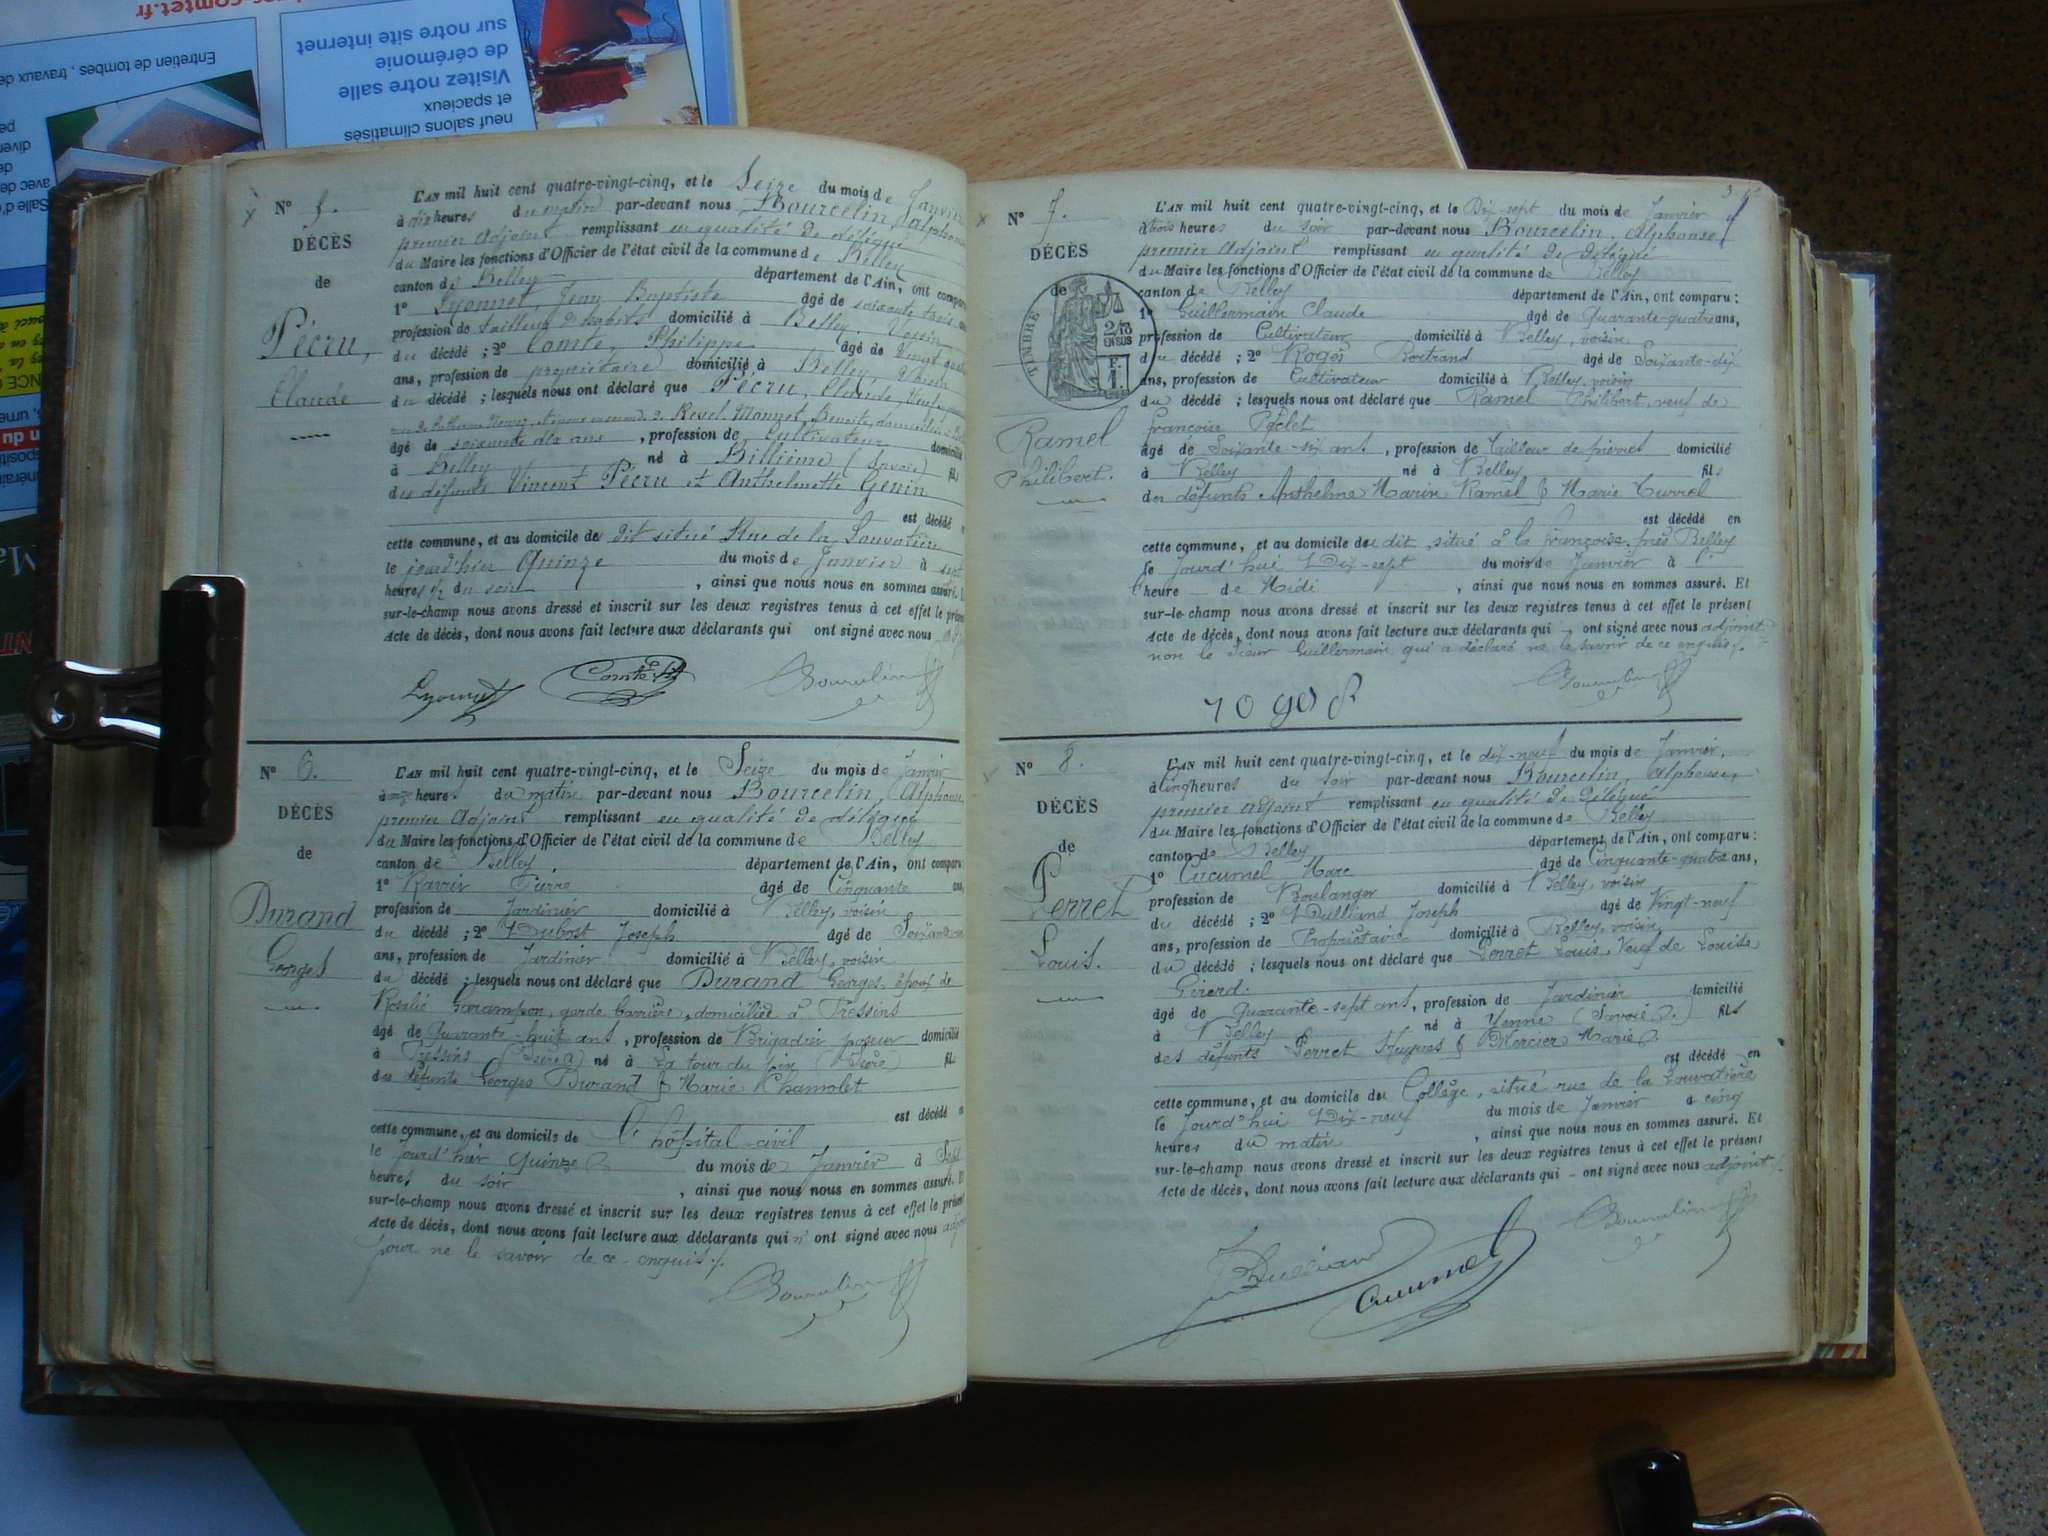 comtet.fr
Entretien de tombes, travaux de
Visitez notre salle
de cérémonie
sur notre site internet
neuf salons climatisés
et spacieux
N° 5.
DÉCÈS
de
Pécru,
Claude
L'AN mil huit cent quatre-vingt-cinq, et le Seize du mois de Janvier
à dix heures du matin par-devant nous Bourcelin, Alphonse
premier Adjoint remplissant en qualité de délégué
du Maire les fonctions d'Officier de l'état civil de la commune de Belley
canton de Belley département de l'Ain, ont comparu
1° Lyonnet, Jean Baptiste âgé de soixante trois ans
profession de tailleur d'habits domicilié à Belley, voisin
du décédé ; 2° Comte, Philippe âgé de Vingt quatre
ans, profession de propriétaire domicilié à Belley, voisin
du décédé ; lesquels nous ont déclaré que Pécru, Claude, Veuf
Revel Monnet, Benoîte, domiciliée à
âgé de soixante dix ans , profession de Cultivateur domicilié
à Belley né à Billième (Savoie) fils
des défunts Vincent Pécru et Anthelmette Genin
est décédé en
cette commune, et au domicile de dit situé Rue de la Louvatière
le jourd'hier Quinze du mois de Janvier à sept
heures ½ du soir , ainsi que nous nous en sommes assuré. Et
sur-le-champ nous avons dressé et inscrit sur les deux registres tenus à cet effet le présent
Acte de décès, dont nous avons fait lecture aux déclarants qui ont signé avec nous
Lyonnet Comte Ph Bourcelin
N° 6.
DÉCÈS
de
Durand
Georges
L'AN mil huit cent quatre-vingt-cinq, et le Seize du mois de Janvier
à onze heures du matin par-devant nous Bourcelin, Alphonse
premier Adjoint remplissant en qualité de délégué
du Maire les fonctions d'Officier de l'état civil de la commune de Belley
canton de Belley département de l'Ain, ont comparu:
1° Ravier Pierre âgé de Cinquante ans,
profession de Jardinier domicilié à Belley, voisin
du décédé ; 2° Dubost Joseph âgé de Soixante
ans, profession de Jardinier domicilié à Belley, voisin
du décédé ; lesquels nous ont déclaré que Durand Georges, époux de
Rosalie Garampon, garde barrière, domiciliée à Pressins
âgé de Quarante-huit ans , profession de Brigadier poseur domicilié
à Pressins (Isère) né à La tour du pin (Isère) fils
des défunts Georges Durand & Marie Chamolet
est décédé en
cette commune, et au domicile de l'hôpital civil
le jourd'hier quinze du mois de Janvier à Sept
heures du soir , ainsi que nous nous en sommes assuré. Et
sur-le-champ nous avons dressé et inscrit sur les deux registres tenus à cet effet le présent
Acte de décès, dont nous avons fait lecture aux déclarants qui n'ont signé avec nous adjoint
pour ne le savoir de ce enquis ./.
Bourcelin
N° 7.
DÉCÈS
de
TIMBRE
2/10
EN SUS
F.
1.
Ramel
Philibert.
L'AN mil huit cent quatre-vingt-cinq, et le Dix-sept du mois de Janvier
à trois heures du soir par-devant nous Bourcelin, Alphonse,
premier Adjoint remplissant en qualité de délégué
du Maire les fonctions d'Officier de l'état civil de la commune de Belley
canton de Belley département de l'Ain, ont comparu :
1° Guillermain Claude âgé de Quarante-quatre ans,
profession de Cultivateur domicilié à Belley, voisin
du décédé ; 2° Roger Bertrand âgé de Soixante-dix
ans, profession de Cultivateur domicilié à Belley, voisin
du décédé ; lesquels nous ont déclaré que Ramel Philibert, veuf de
Françoise Péclet
âgé de Soixante-six ans , profession de tailleur de pierres domicilié
à Belley né à Belley fils
des défunts Anthelme Marin Ramel & Marie Currel
est décédé en
cette commune, et au domicile du dit, situé à la françoise, près Belley
le Jourd'hui Dix-sept du mois de Janvier à l'
heure de Midi , ainsi que nous nous en sommes assuré. Et
sur-le-champ nous avons dressé et inscrit sur les deux registres tenus à cet effet le présent
Acte de décès, dont nous avons fait lecture aux déclarants qui ont signé avec nous adjoint
non le Sieur Guillermain qui a déclaré ne le savoir de ce enquis ./.
Bourcelin
N° 8.
DÉCÈS
de
Perret
Louis.
L'AN mil huit cent quatre-vingt-cinq, et le dix-neuf du mois de Janvier,
à cinq heures du soir par-devant nous Bourcelin, Alphonse,
premier adjoint remplissant en qualité de délégué
du Maire les fonctions d'Officier de l'état civil de la commune de Belley
canton de Belley département de l'Ain, ont comparu :
1° Cucumel Marc âgé de Cinquante-quatre ans,
profession de Boulanger domicilié à Belley, voisin
du décédé ; 2° Dulliand Joseph âgé de Vingt-neuf
ans, profession de Propriétaire domicilié à Belley, voisin
du décédé ; lesquels nous ont déclaré que Perret Louis, Veuf de Louise
Girerd.
âgé de Quarante-sept ans, profession de Jardinier domicilié
à Belley né à Yenne (Savoie) fils
des défunts Perret Hugues & Mercier Marie
est décédé en
cette commune, et au domicile du Collège, situé rue de la Louvatière
le Jourd'hui Dix-neuf du mois de Janvier à cinq
heures du matin , ainsi que nous nous en sommes assuré. Et
sur-le-champ nous avons dressé et inscrit sur les deux registres tenus à cet effet le présent
Acte de décès, dont nous avons fait lecture aux déclarants qui ont signé avec nous adjoint ./.
Bourcelin
J Dulliand
Cucumel